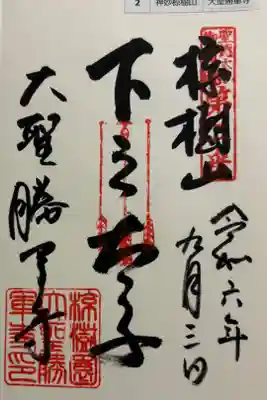 2 神妙椋樹山 大聖勝軍寺
椋樹山
令和六年
九月三日
下之太子
大聖勝軍寺